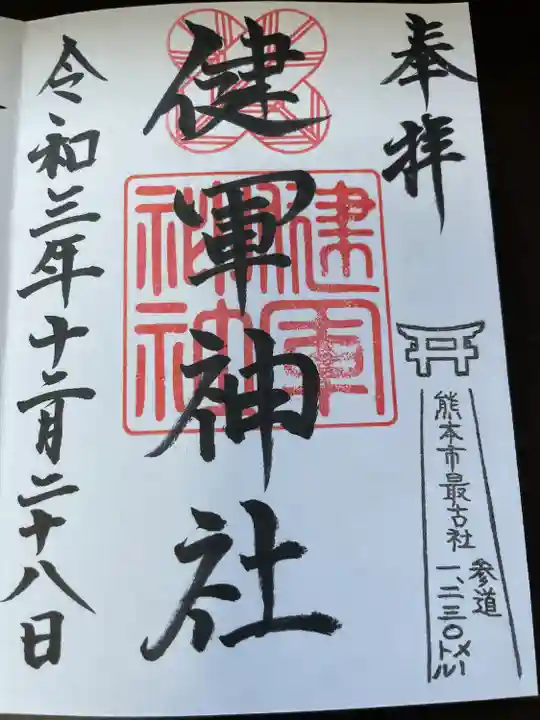 奉拝
熊本市最古社
参道
一、二三〇メートル
健軍神社
健軍
神社
令和三年十二月二十八日